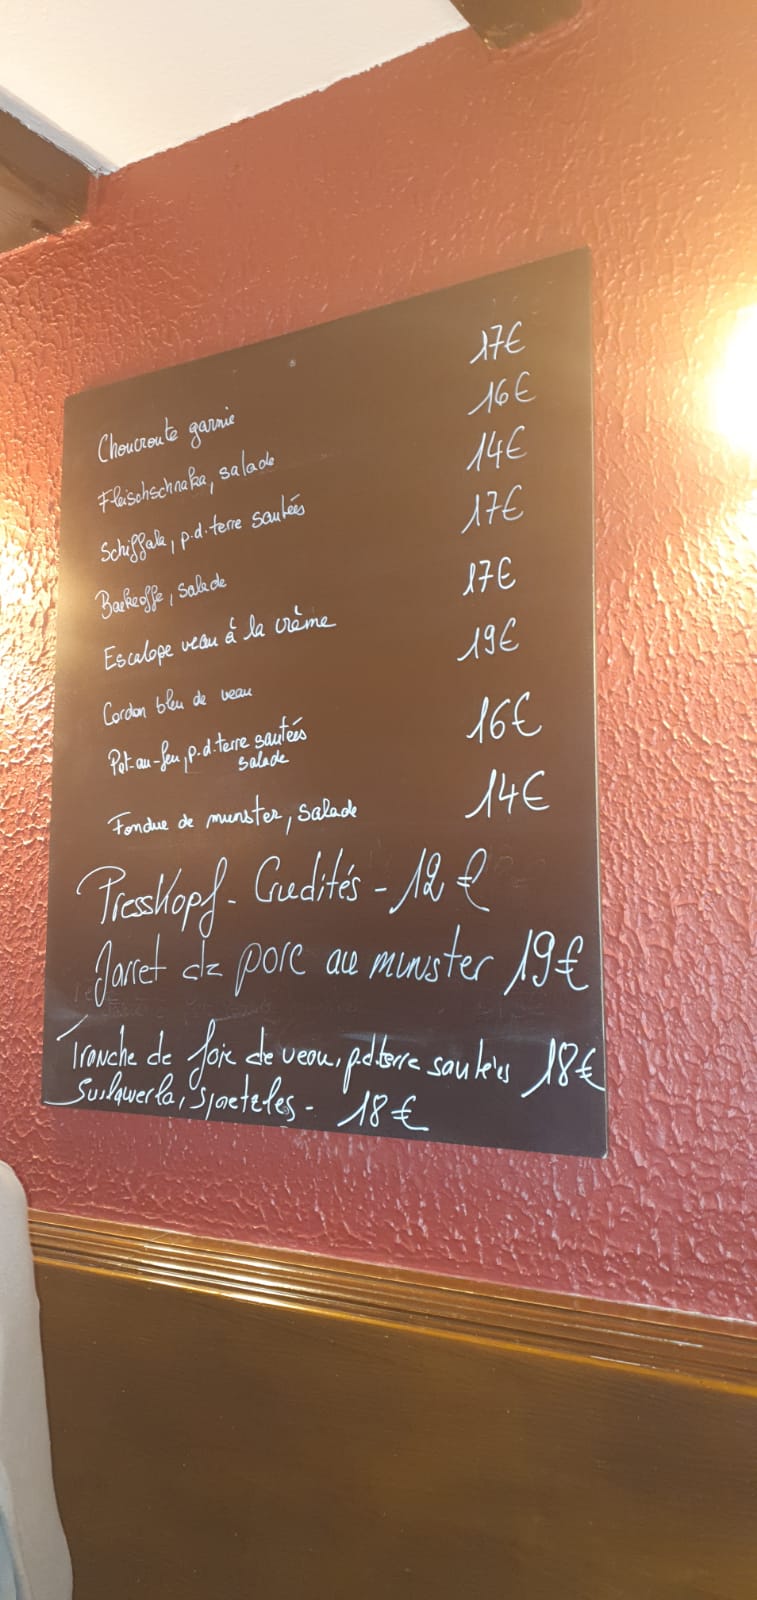 Choucroute garnie 17€
Fleischschnaka, salade 16€
Schiffala, p.d.terre sautées 14€
Baekeoffe, salade 17€
Escalope veau à la crème 17€
Cordon bleu de veau 19€
Pot-au-feu, p.d.terre sautées 16€
salade
Fondue de munster, salade 14€
Presskopf - Crudités - 12€
Jarret de porc au munster 19€
Tranche de foie de veau, p.d.terre sautées 18€
Surlawerla, spaetzles - 18€